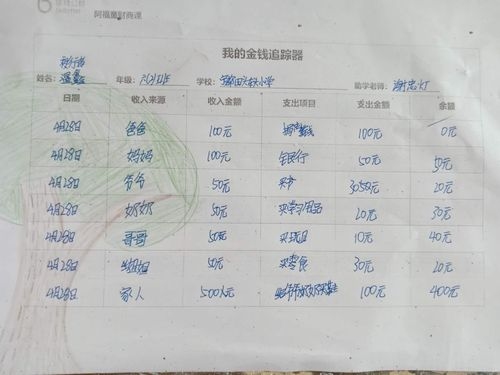 阿福童财商课
我的金钱追踪器
姓名: 年级: 学校: 小学 助学老师: 谢忠灯
日期 收入来源 收入金额 支出项目 支出金额 余额
4月28日 爸爸 100元 100元 0元
4月28日 妈妈 100元 存银行 50元 50元
4月28日 爷爷 50元 买书 20元
4月28日 奶奶 50元 买学习用品 20元 30元
4月28日 哥哥 50元 买玩具 10元 40元
4月28日 姐姐 50元 买零食 30元 20元
4月28日 家人 500元 100元 400元